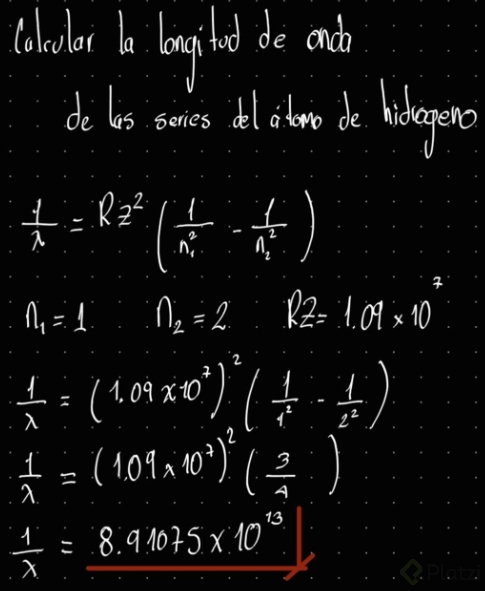 Calcular la longitud de onda
de las series del átomo de hidrogeno
1/λ = Rz² (1/n₁² - 1/n₂²)
n₁ = 1 n₂ = 2 RZ = 1.09 x 10⁷
1/λ = (1.09 x 10⁷)² (1/1² - 1/2²)
1/λ = (1.09 x 10⁷)² (3/4)
1/λ = 8.91075 x 10¹³
Platzi